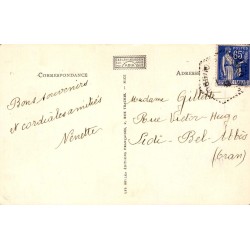 CORRESPONDANCE
ADRESSE
POSTES
65c
Bons souvenirs
et cordiales amitiés
Nenette
Madame Gillette
Rue Victor-Hugo
Sidi-Bel-Abbès
(Oran)